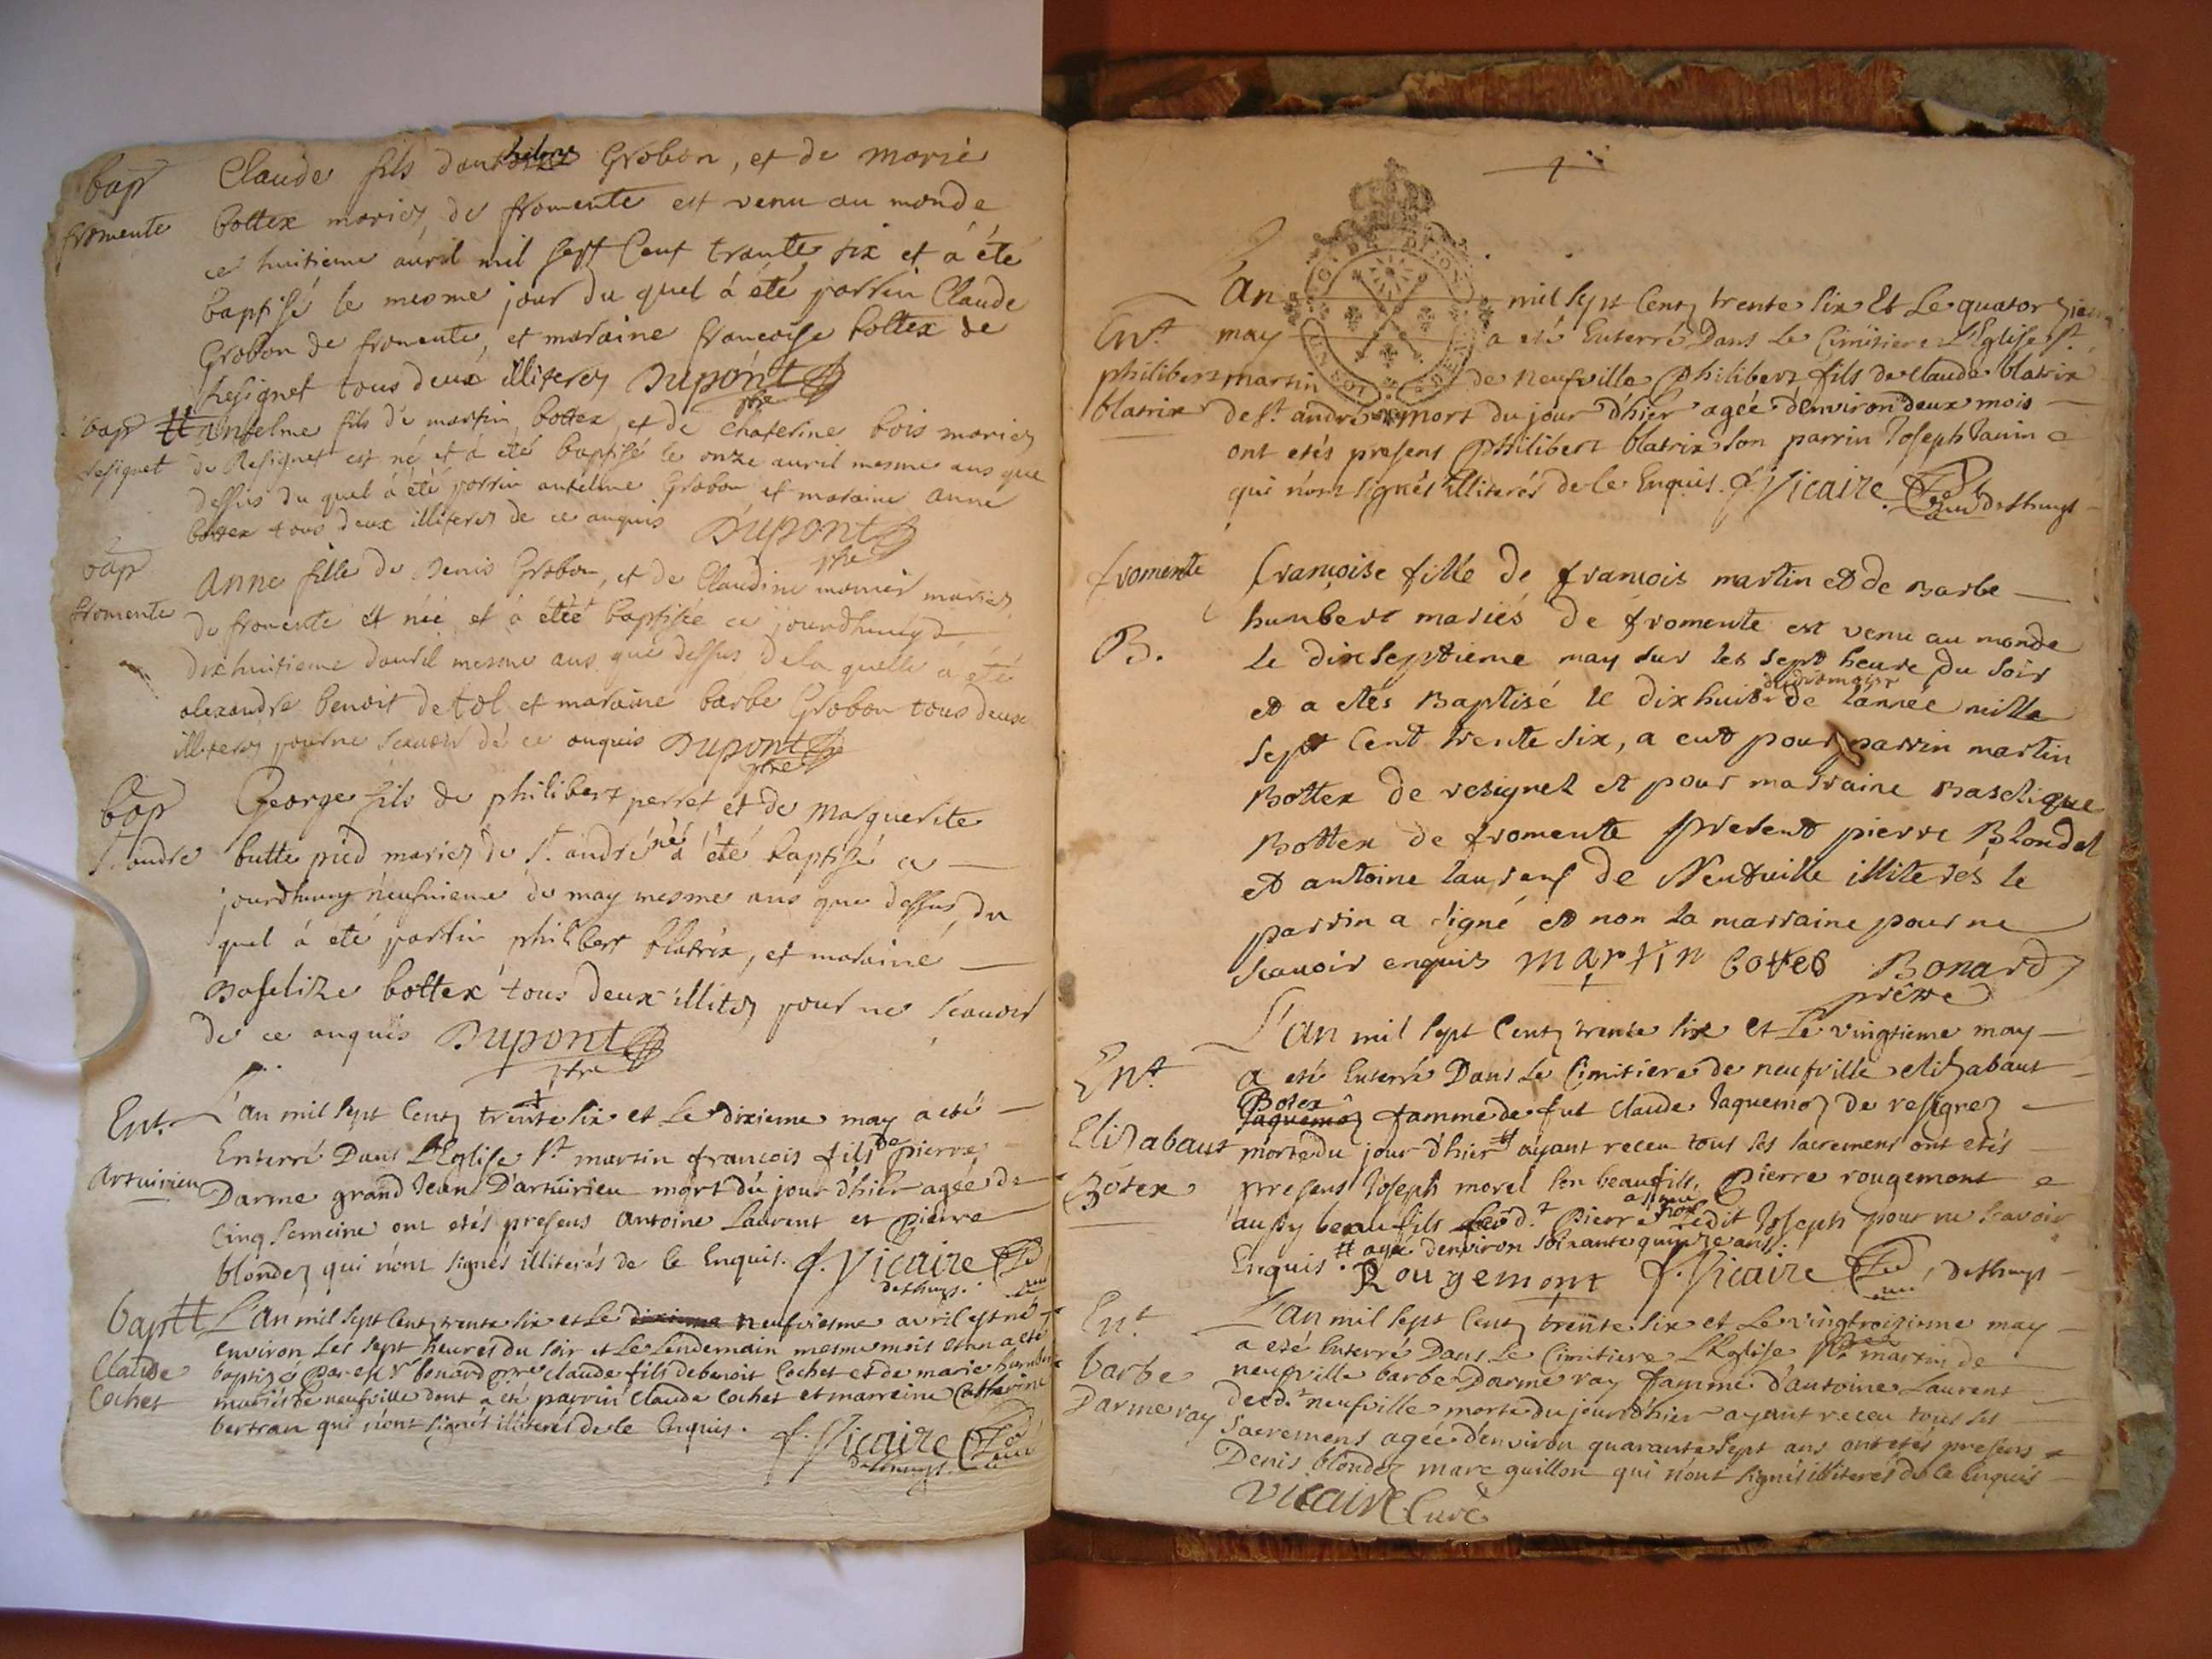 bap Claude fils d'anthelme Grobon, et de marie
fromente bottex mariez de fromente est venu au monde
ce huitieme auril mil sept Cent trante six et à été
baptisé le mesme jour du quel à été parrin Claude
Grobon de fromente, et maraine francoise bottex de
Resignet tous deux illiterez Dupont
ptre
bap anselme fils de martin bottex, et de Chaterine bois mariez
resignet de Resignet est né et à été baptisé le onze auril mesme ans que
dessus du quel à été parrin anselme Grobon et maraine anne
bottex tous deux illiterez de ce anquis Dupont
ptre
bap anne fille de Denis Grobon, et de Claudine monier mariez
fromente de fromente et née et à étée baptisée ce jourdhuuy
dixhuitieme dauril mesme ans que dessus dela quelle à été
alexandre benoit de tol et maraine barbe Grobon tous deux
illiterez pour ne scauoir de ce anquis Dupont
ptre
bap George fils de philibert perret et de marguerite
St andré butte pied mariez de St. andré né à été baptisé ce
jourdhuuy neufuieme de may mesme ans que dessus, du
quel à été parrin philibert blatrix, et maraine
baselize bottex tous deux illitez pour ne scauoir
de ce anquis Dupont
ptre
Ent. L'an mil sept Centz trente six et Le dixieme may a eté
Enterré Dans L'Eglise St martin francois fils de pierre
Artuirieu Darme grand Jean D'artuirieu mort du jour d'hier agée de
Cinq Semeine ont etés presens Antoine Laurent et Pierre
blondez qui n'ont signés illiterés de le Enquis. f. Vicaire
desseruz.
bapt L'an mil sept Centz trente six et Le dixieme neufviesme avril est né
environ Les sept heures du soir et Le Lendemain mesme mois et an a eté
Claude baptizé par est Sr bonard ptre claude fils de benoit Cochet et de marie humbert
Cochet mariés de neufville dont a eté parrin Claude Cochet et marreine Catherine
bertran qui n'ont signés illiteres de le Enquis. f. Vicaire
L'an mil sept Centz trente six Et Le quatorzieme
Ent. may a eté Enterré Dans Le Cimitiere L'Eglise St
philibert martin de neufville Philibert fils de claude blatrix
blatrix de St. andré mort du jour d'hier agée d'environ deux mois
ont etés presens Philibert blatrix son parrin Joseph Janin
qui n'ont signés illiterés de le Enquis. f. Vicaire
fromente françoise fille de françois martin et de Barbe
humbert mariés de fromente est venu au monde
B. le dixseptieme may sur les sept heure du soir
et a etes Baptisé le dix huit du dit mois de lannée mille
sept Cent trente six, a eut pour parrin martin
Bottex de resignet et pour marraine Baselique
Bottex de fromente present pierre Blondel
et antoine laurens de Neufuille illiterés le
parrin a signé et non la marraine pour ne
scauoir enquis martin bottes Bonard
prêtre
L'an mil sept Centz trente six et Le vingtieme may
Ent. a eté Enterré Dans Le Cimitiere de neufville elizabaut
Botex
Jaquemoz famme de fut Claude Jaquemoz de resignez
Elizabaut morte du jour d'hier # ayant receu tous ses sacremens ont etés
Botex presens Joseph morel son beaufils, Pierre rougemont
aussy beaufils led.t Pierre a signé non ledit Joseph pour ne scavoir
# agée d'environ soixante quinze ans
Enquis. Rougemont f. Vicaire
L'an mil sept Centz trente six et Le vingtroizieme may
Ent. a eté Enterré Dans Le Cimitiere L'Eglise St martin de
barbe neufville barbe Darme ray famme d'antoine Laurent
Darme ray dud.t neufville morte du jour d'hier ayant receu tous ses
sacremens agée d'environ quarante sept ans ont etés presens
Denis blondez marc guillon qui n'ont signés illiteres de le Enquis
Vicaire Curé